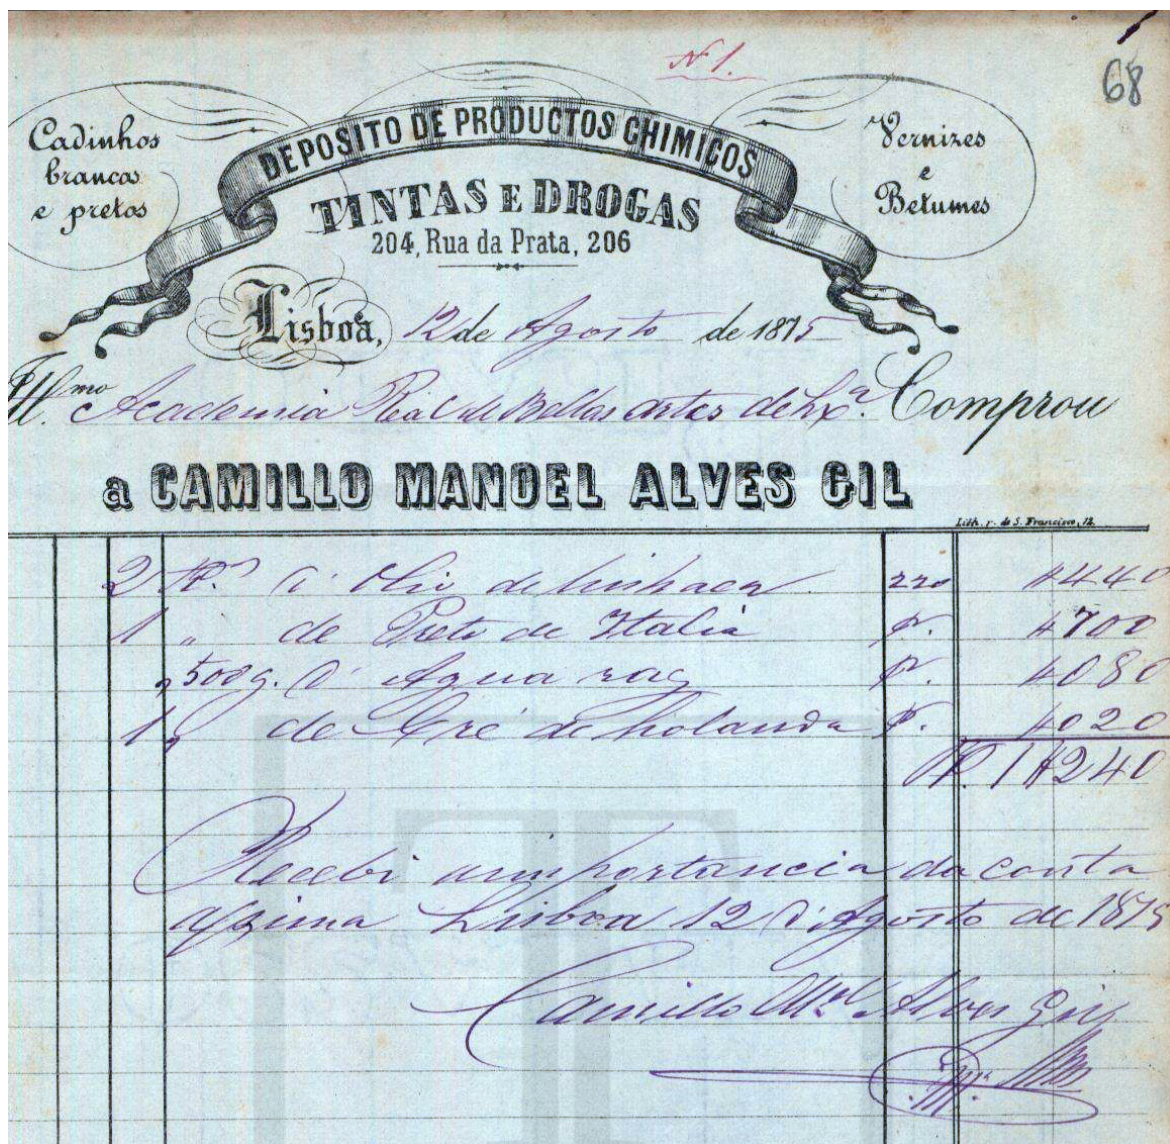 1
68
N 1.
Cadinhos
brancos
e pretos
DEPOSITO DE PRODUCTOS CHIMICOS
TINTAS E DROGAS
204, Rua da Prata, 206
Vernizes
e
Betumes
Lisboa, 12 de Agosto de 1875
Ill.mo Academia Real de Bellas Artes de Lxª. Comprou
a CAMILLO MANOEL ALVES GIL
Lith. r. de S. Francisco, 12.
2 K.os d' Olio de linhaça 220 $440
1 " de Preto de Italia p. $700
500 g. d' Agua raz p. $080
1 de Cré de holanda p. $020
1$240
Recebi a importancia da conta
açima Lisboa 12 d' Agosto de 1875
Camillo M.el Alves Gil